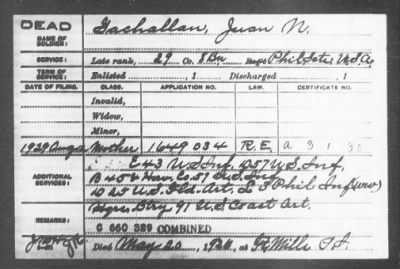 DEAD
NAME OF SOLDIER: Gachallan, Juan N.
SERVICE: Late rank, 29 Co. 8 Bn Reg't Phil. Scts. U.S.A.
TERM OF SERVICE: Enlisted , 1 Discharged , 1
DATE OF FILING. CLASS. APPLICATION NO. LAW. CERTIFICATE NO.
Invalid,
Widow,
Minor,
1929 Mother 1649034 R.E. a 3 1 30
ADDITIONAL SERVICES: E 43 U.S. Inf. 1057 U.S. Inf.
Co. 57 U.S. Inf.
U.S. Fld. Art. Phil Inf
Btry 91 U.S. Coast Art.
REMARKS: C 660 329 COMBINED
Died May 20 , at Mills P.I.